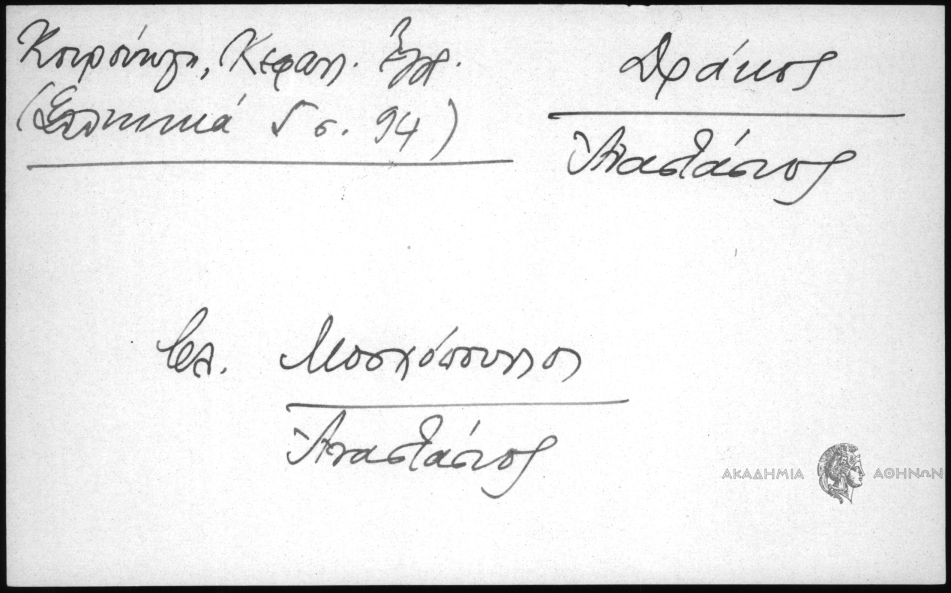 Κοιρσύνη, Κεφαλ. Ἔγγ.
(Ἑλληνικά 5 σ. 94)
Δράκος
Ἀναστάσιος
βλ. Μοσχόπουλοι
Ἀναστάσιος
ΑΚΑΔΗΜΙΑ ΑΘΗΝΩΝ